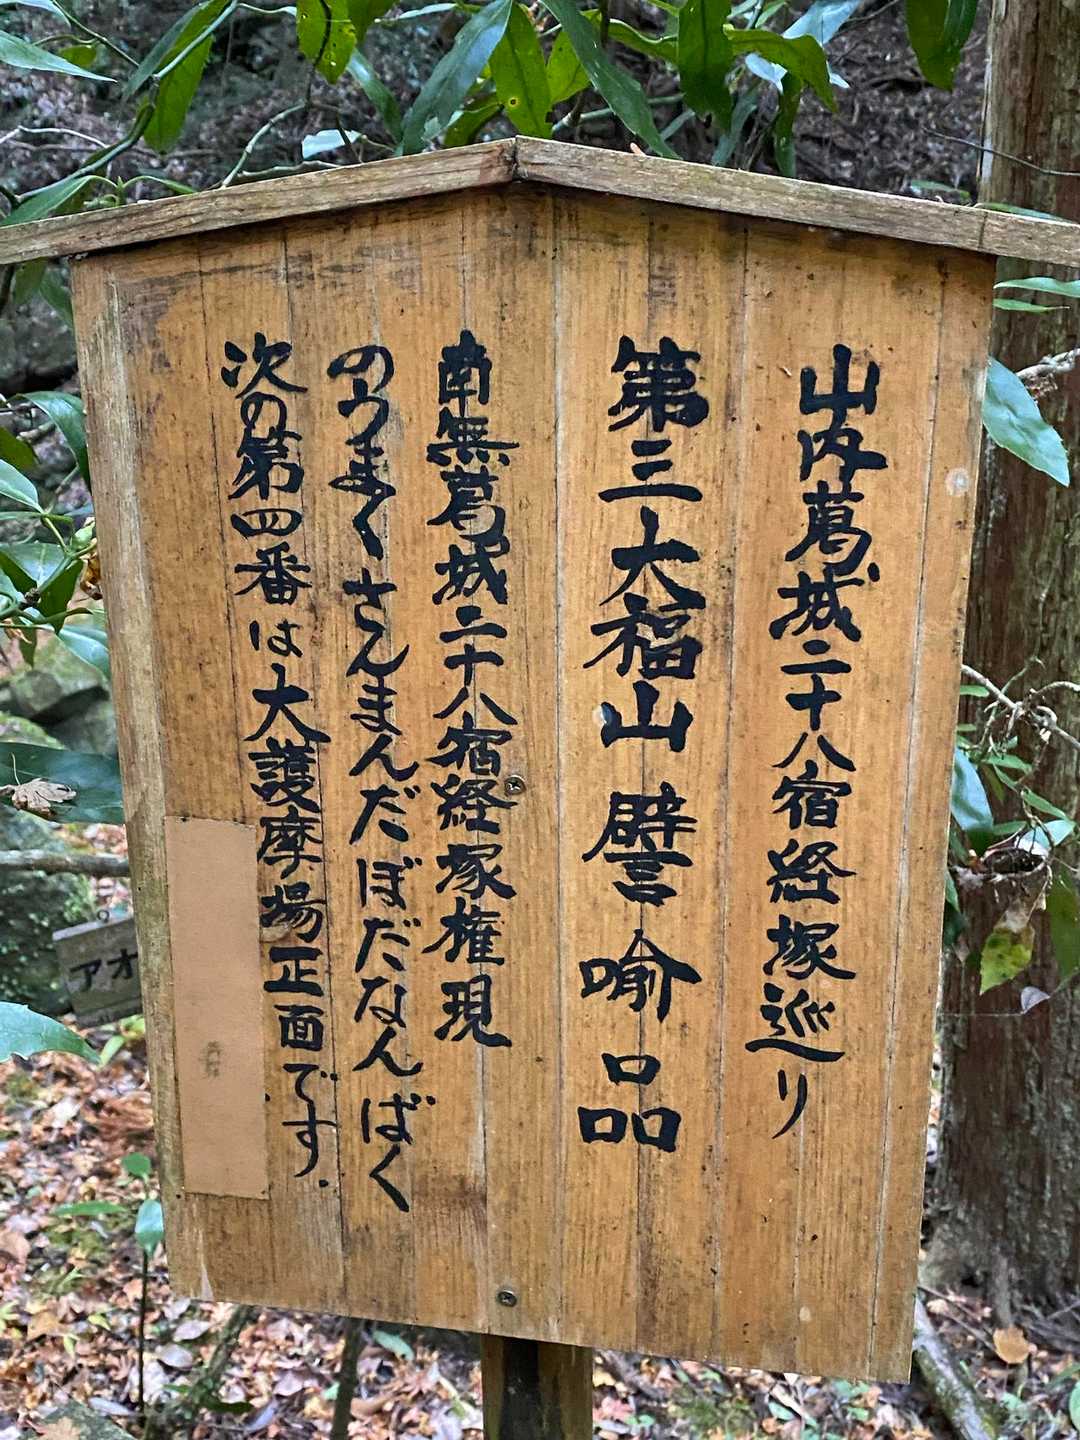 山内葛城二十八宿経塚巡り
第三大福山 譬喻品
南無葛城二十八宿経塚権現
のうまくさんまんだぼだなんばく
次の第四番は大護摩場正面です.
アオ